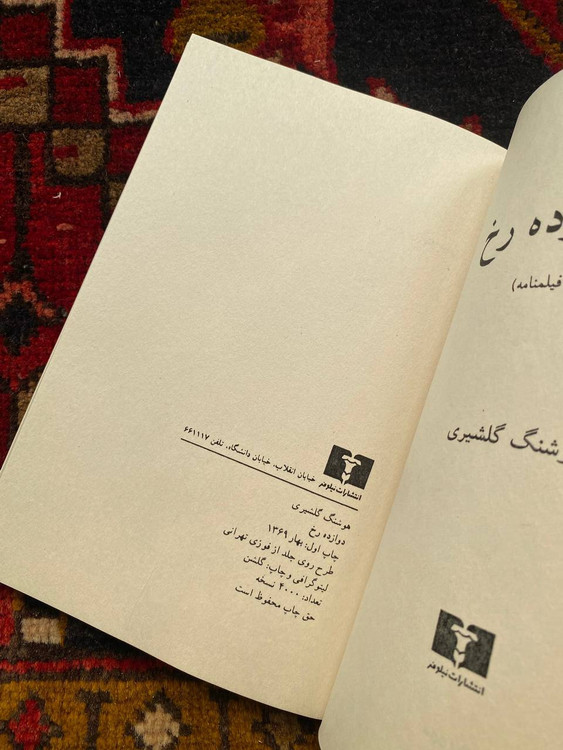 انتشارات نیلوفر خیابان انقلاب، خیابان دانشگاه، تلفن ۶۶۱۱۱۷
هوشنگ گلشیری
دوازده رخ
چاپ اول: بهار ۱۳۶۹
طرح روی جلد از فوزی تهرانی
لیتوگرافی و چاپ: گلشن
تعداد: ۴۰۰۰ نسخه
حق چاپ محفوظ است
ده رخ
فیلمنامه)
وشنگ گلشیری
انتشارات نیلوفر